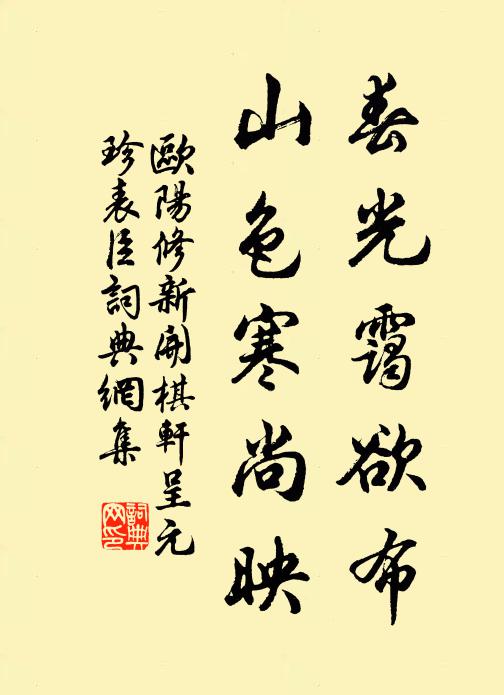 春光靄欲布
山色寒尚映
歐陽修新開棋軒呈元
珍表臣詞典網集
詞典
网印